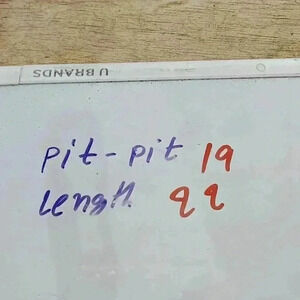 U BRANDS
pit-pit 19
Length 22